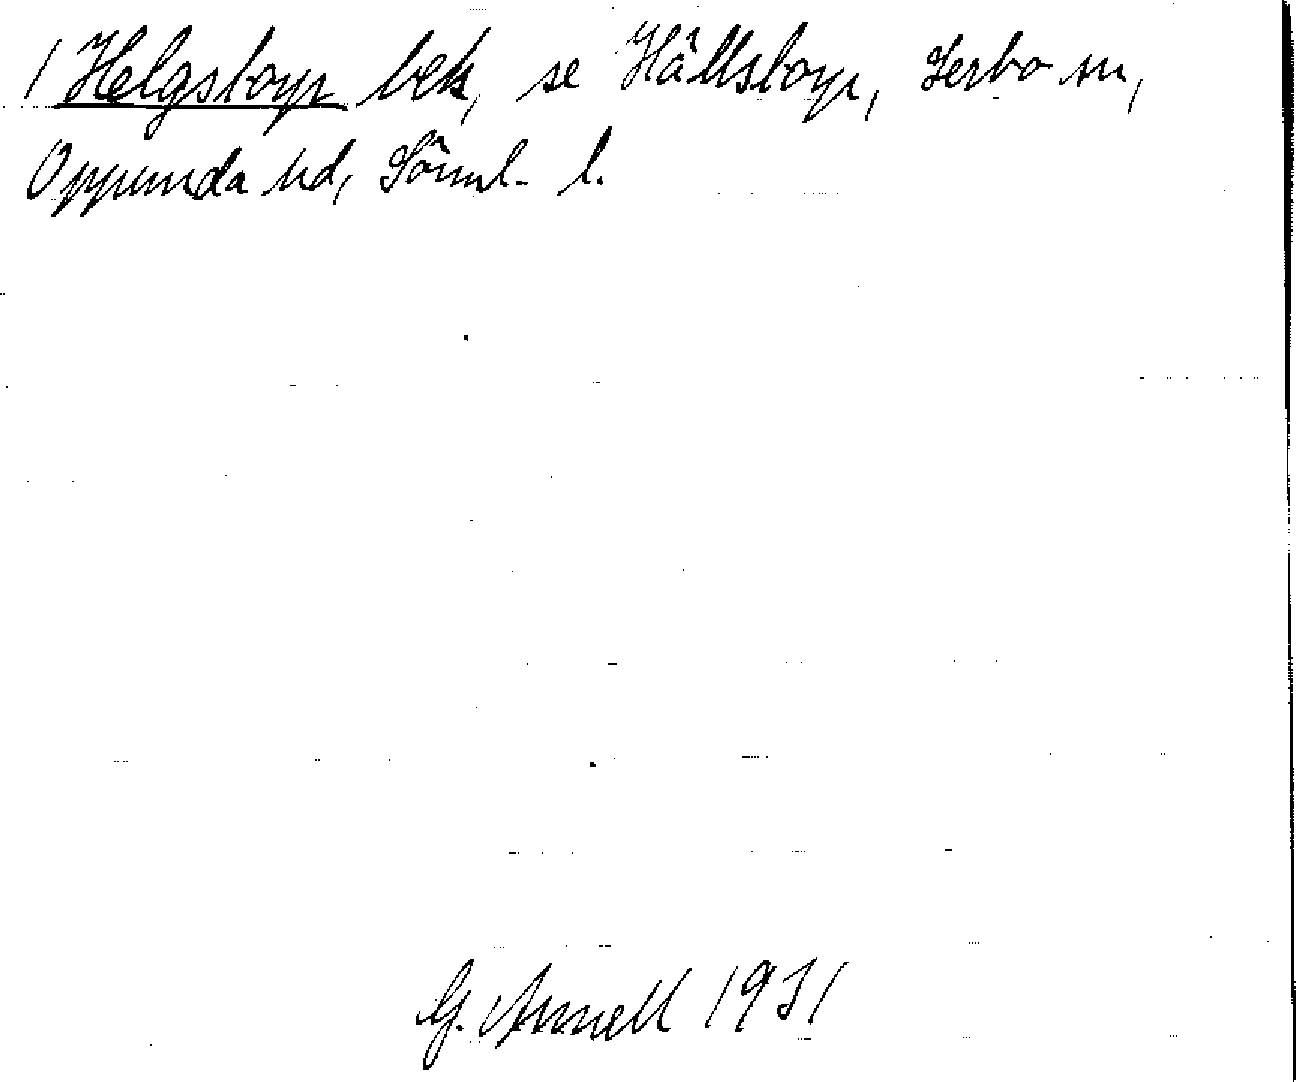 / Helgstorp bek, se Hållstorp, Lerbo sn,
Oppunda hd, Söml. l.
G. Arnell 1931